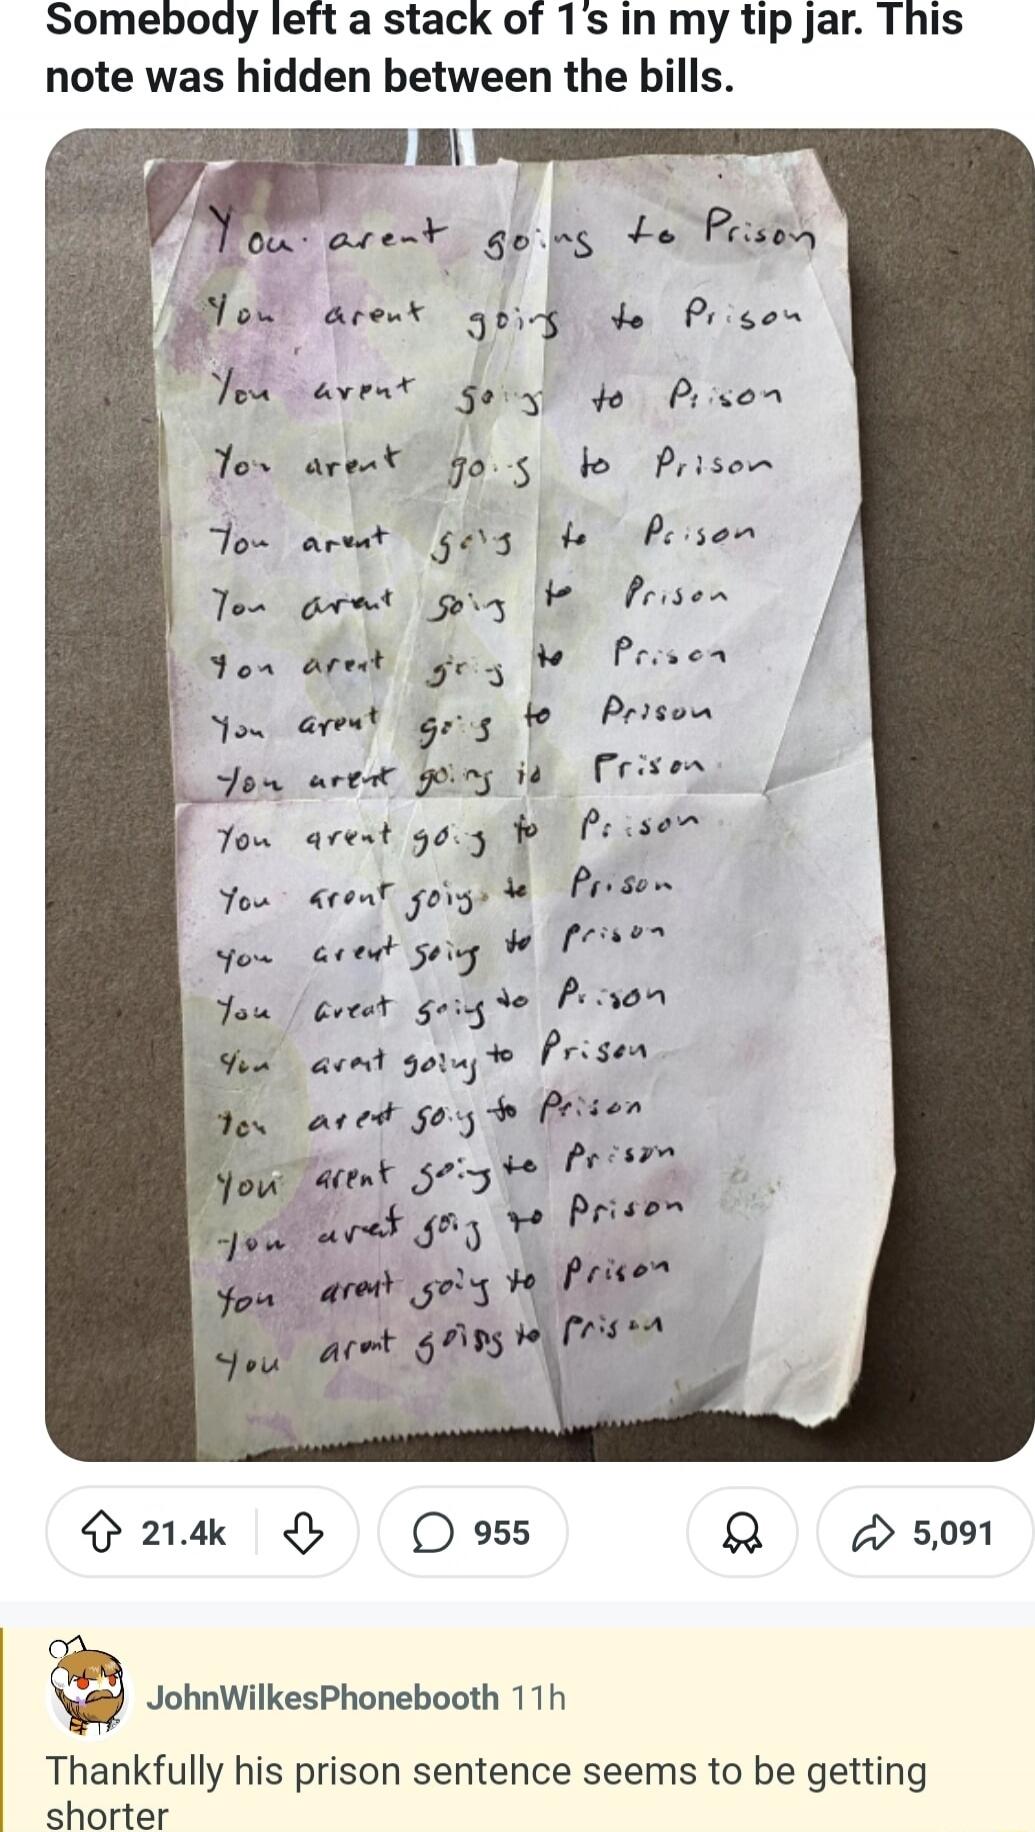 Somebody left a stack of 1's in my tip jar. This
note was hidden between the bills.
You arent going to Prison
You arent going to Prison
You arent going to Prison
You arent going to Prison
You arent going to Prison
You arent going to Prison
You arent going to Prison
You arent going to Prison
You arent going to Prison
You arent going to Prison
You arent going to Prison
You arent going to prison
You arent going to Prison
You arent going to Prison
You arent going to Prison
You arent going to Prison
You arent going to Prison
You arent going to Prison
You arent going to Prison
21.4k 955 5,091
JohnWilkesPhonebooth 11h
Thankfully his prison sentence seems to be getting
shorter